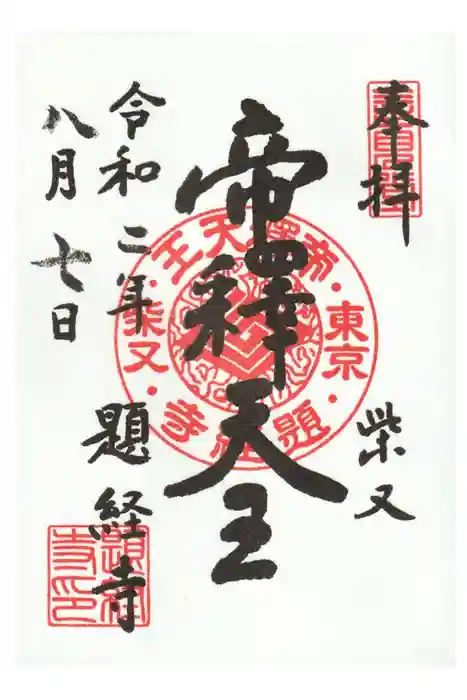 奉拝
柴又
帝釋天王
令和二年
八月七日
題経寺
帝釋天王
東京
柴又
題経寺
題経寺印